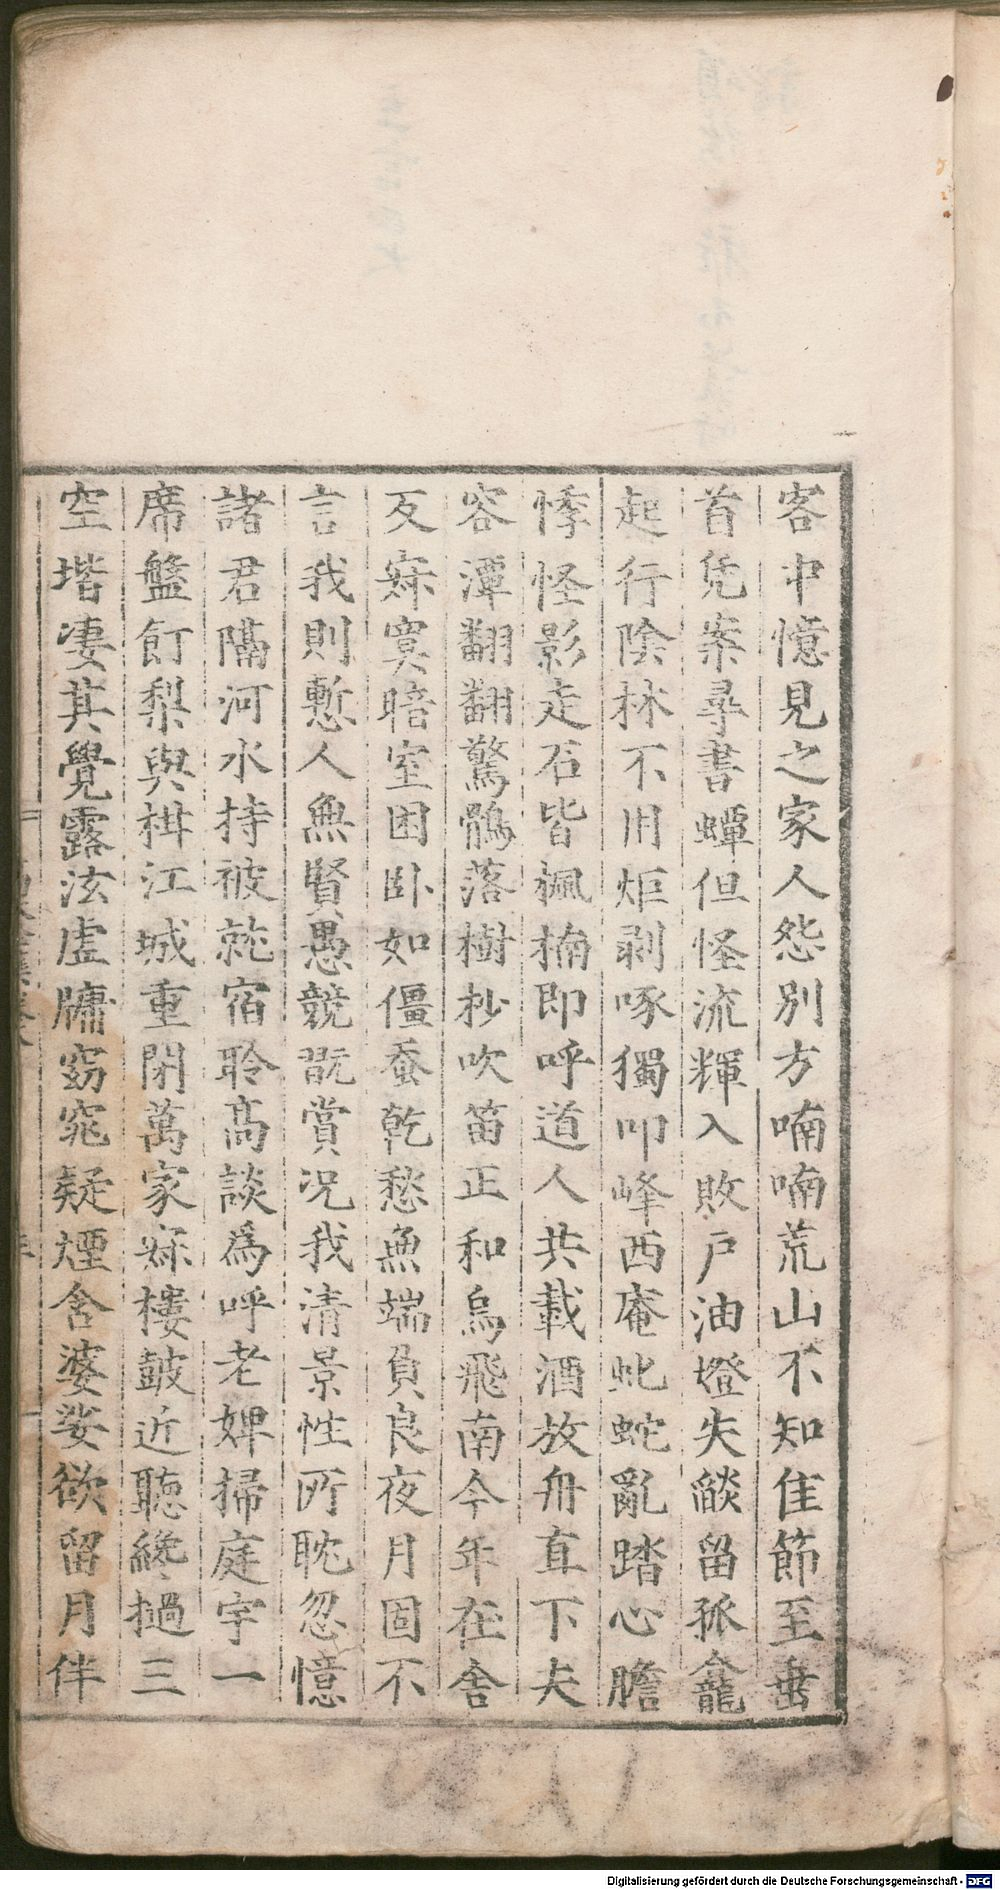 客中憶見之家人怨別方喃喃荒山不知佳節至垂
首凭案尋書蟫但怪流輝入敗戶油燈失燄留孤龕
起行陰林不用炬剥啄獨叩峰西庵虵蛇亂踏心膽
悸怪影走石皆楓楠即呼道人共載酒放舟直下夫
容潭翻翻驚鶻落樹杪吹笛正和烏飛南今年在舍
反寂寞暗室困卧如僵蚕乾愁無端負良夜月固不
言我則慙人無賢愚競既賞况我清景性所耽忽憶
諸君隔河水持被就宿聆高談爲呼老婢掃庭宇一
席盤飣梨與柑江城重閉萬家寂樓皷近聽纔撾三
空堦凄其覺露泫虛牖窈窕疑煙含婆娑欲留月伴
Digitalisierung gefördert durch die Deutsche Forschungsgemeinschaft - DFG